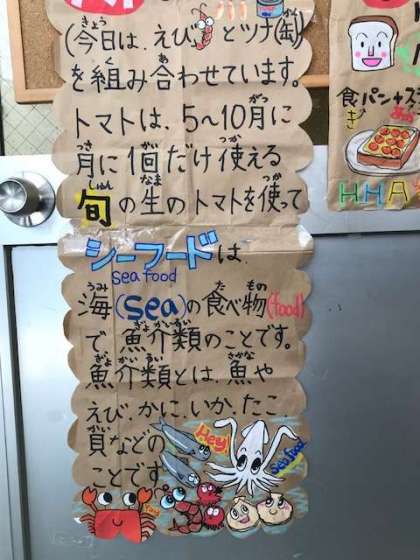 (今日は、えびとツナ(缶)
を組み合わせています。
トマトは、5〜10月に
月に1個だけ使える
旬の生のトマトを使って
シーフードは、
sea food
海(sea)の食べ物(food)
で魚介類のことです。
魚介類とは、魚や
えび、かに、いか、たこ
貝などの
ことです
Hey!
Seafood
食パン+ス
HHA